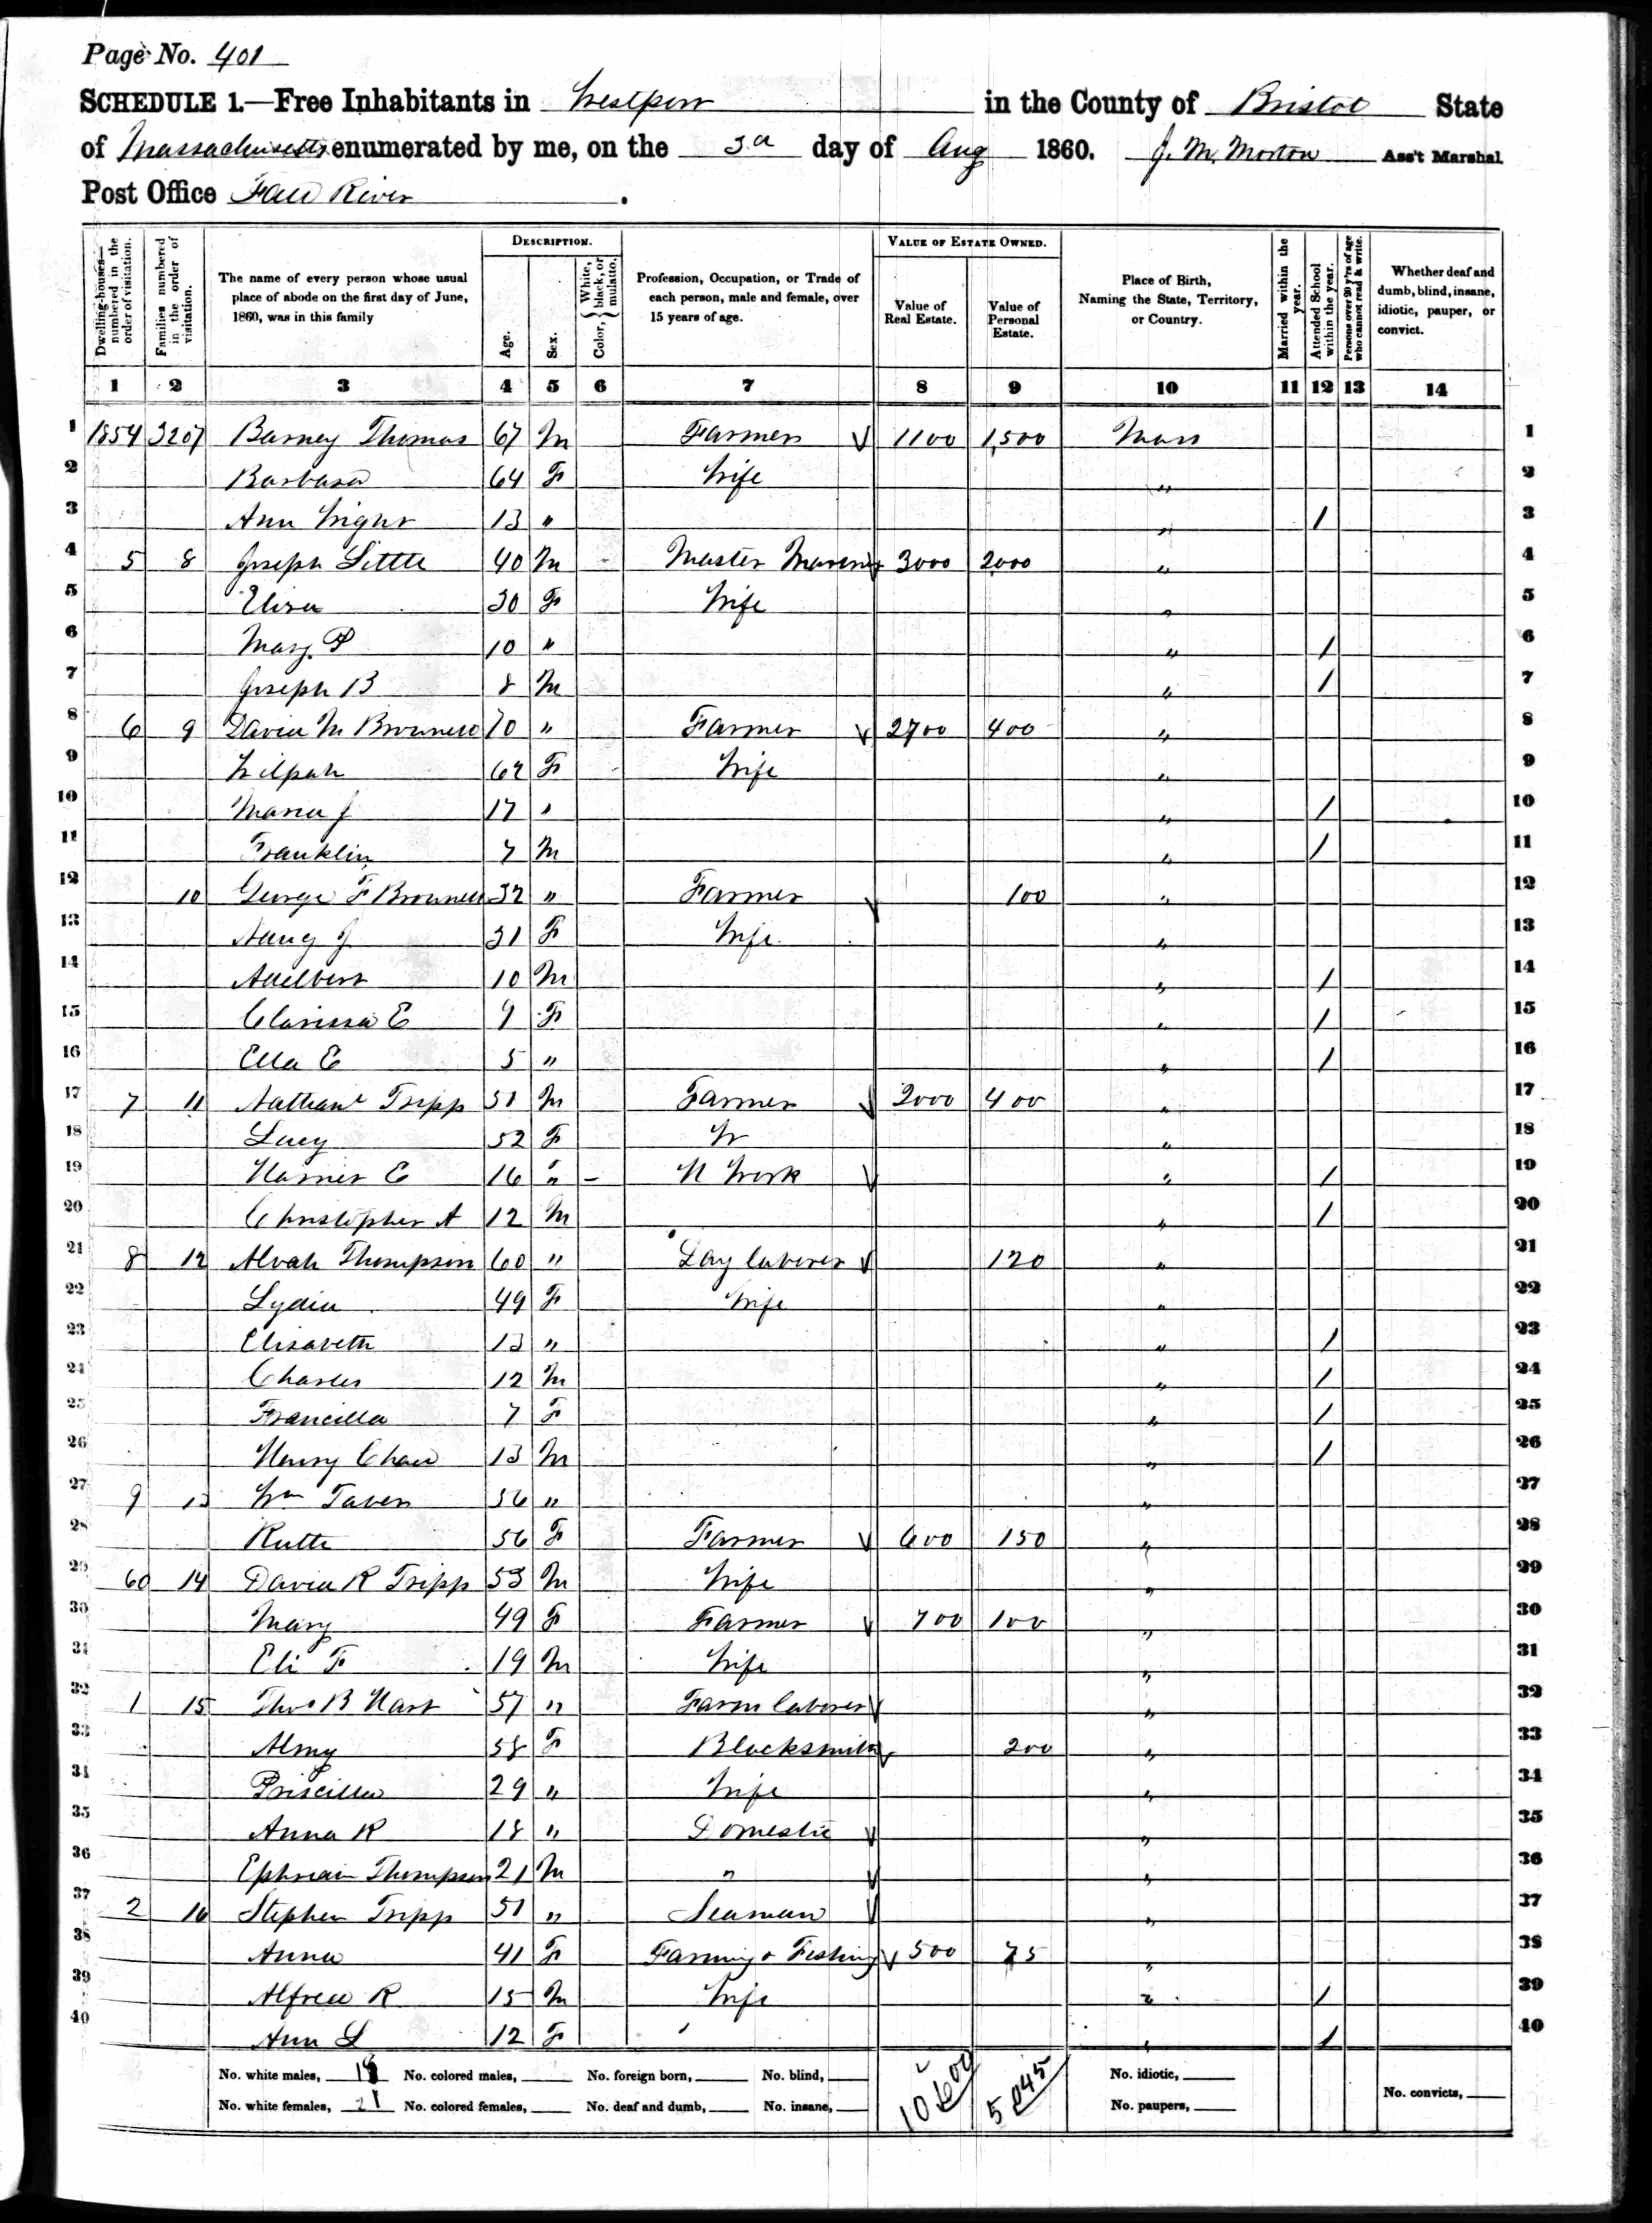 Page No. 401
SCHEDULE 1.—Free Inhabitants in Westport in the County of Bristol State
of Massachusetts enumerated by me, on the 3d day of Aug 1860. J. M. Morton Ass't Marshal
Post Office Fall River.
Dwelling-houses—numbered in the order of visitation.
Families numbered in the order of visitation.
The name of every person whose usual place of abode on the first day of June, 1860, was in this family
DESCRIPTION.
Age.
Sex.
Color, { White, black, or mulatto.
Profession, Occupation, or Trade of each person, male and female, over 15 years of age.
VALUE OF ESTATE OWNED.
Value of Real Estate.
Value of Personal Estate.
Place of Birth, Naming the State, Territory, or Country.
Married within the year.
Attended School within the year.
Persons over 20 y'rs of age who cannot read & write.
Whether deaf and dumb, blind, insane, idiotic, pauper, or convict.
1 2 3 4 5 6 7 8 9 10 11 12 13 14
1 1854 3207 Barney Thomas 67 M Farmer 1100 1,500 Mass 1
2 Barbara 64 F Wife " 2
3 Ann Wight 13 " " / 3
4 5 8 Joseph Little 40 M Master Mariner 3000 2000 " 4
5 Eliza 30 F Wife " 5
6 Mary P 10 " " / 6
7 Joseph B 8 M " / 7
8 6 9 David M Brownell 70 " Farmer 2700 400 " 8
9 Zilpah 62 F Wife " 9
10 Maria J 17 " " / 10
11 Franklin 7 M " / 11
12 10 George F Brownell 32 " Farmer 100 " 12
13 Nancy J 31 F Wife " 13
14 Adelbert 10 M " / 14
15 Clarissa E 9 F " / 15
16 Ella E 5 " " / 16
17 7 11 Nathanl Tripp 51 M Farmer 2000 400 " 17
18 Lucy 52 F W " 18
19 Harriet E 16 " – H Work " / 19
20 Christopher A 12 M " / 20
21 8 12 Alvah Thompson 60 " Day laborer 120 " 21
22 Lydia 49 F Wife " 22
23 Elisabeth 13 " " / 23
24 Charles 12 M " / 24
25 Francilla 7 F " / 25
26 Henry Chace 13 M " / 26
27 9 13 Wm Taber 56 " " 27
28 Ruth 56 F Farmer 600 150 " 28
29 60 14 David R Tripp 53 M Wife " 29
30 Mary 49 F Farmer 700 100 " 30
31 Eli F 19 M Wife " 31
32 1 15 Thos B Hart 57 " Farm laborer " 32
33 Almy 58 F Blacksmith 200 " 33
34 Priscilla 29 " Wife " 34
35 Anna R 18 " Domestic " 35
36 Ephraim Thompson 21 M " " 36
37 2 16 Stephen Tripp 51 " Seaman " 37
38 Anna 41 F Farming & Fishing 500 75 " 38
39 Alfred R 15 M Wife " / 39
40 Ann L 12 F ' " / 40
No. white males, 19 No. colored males, No. foreign born, No. blind, 10600 5045 No. idiotic,
No. white females, 21 No. colored females, No. deaf and dumb, No. insane, No. paupers, No. convicts,